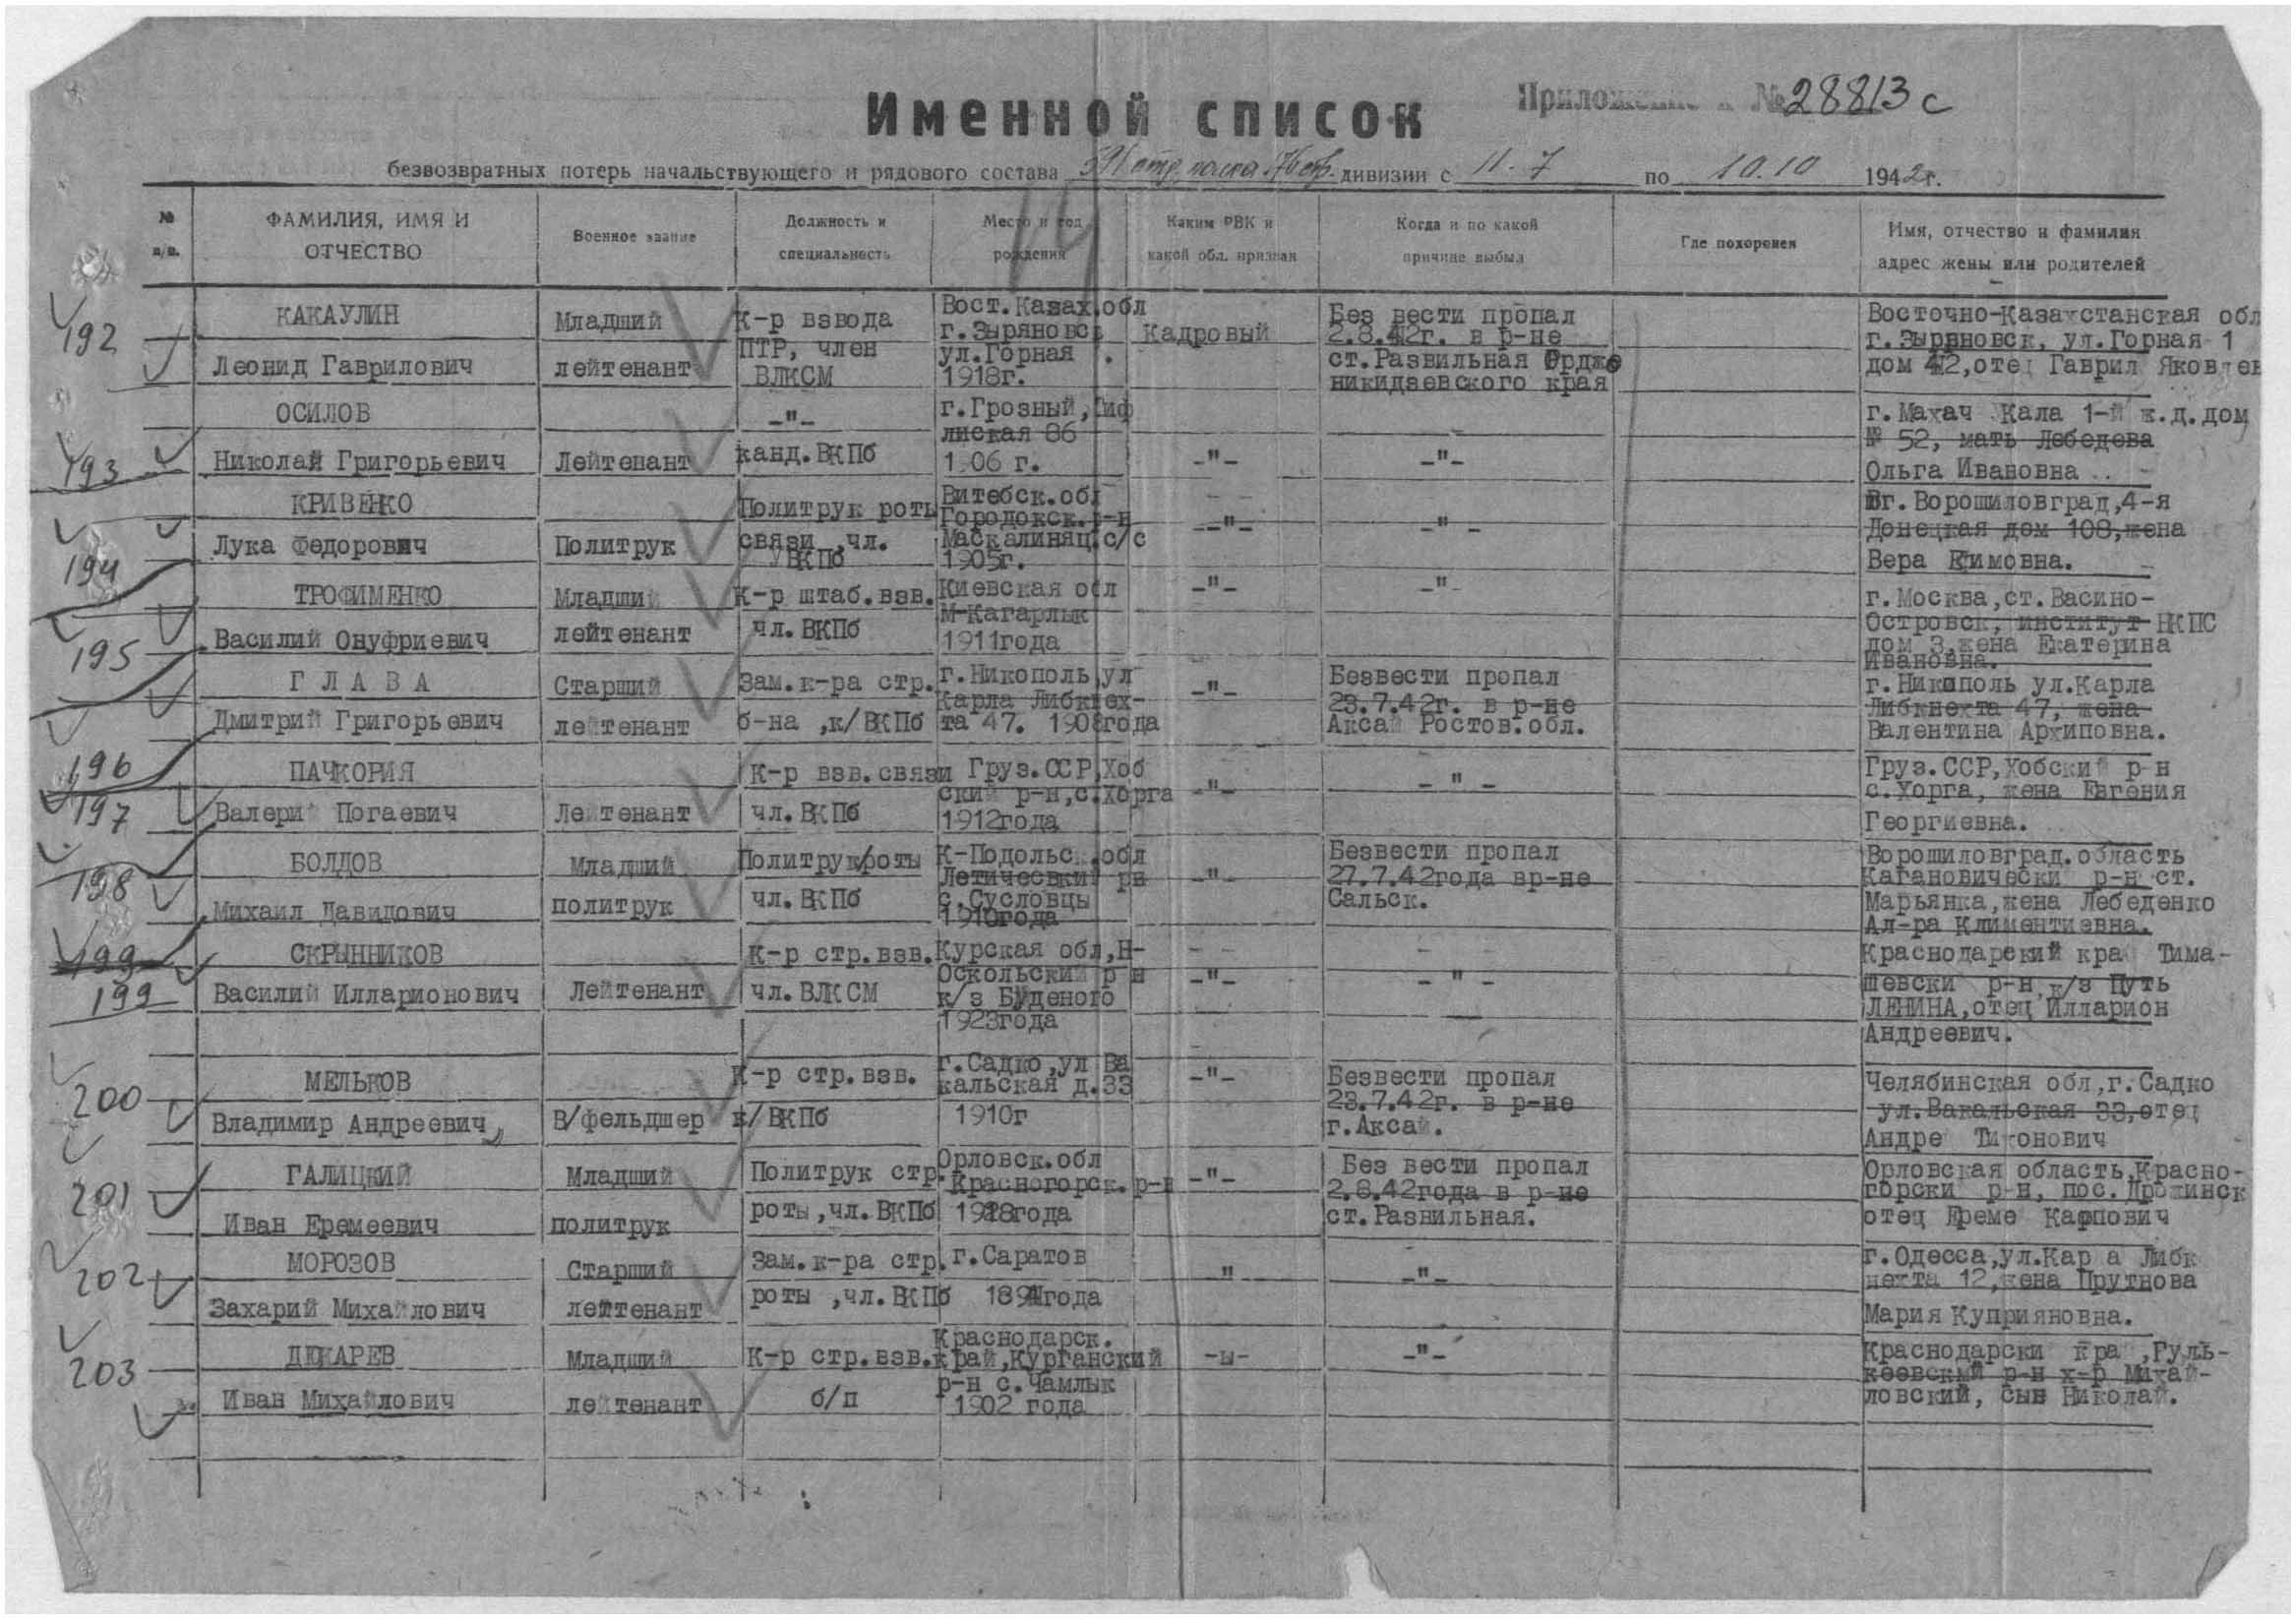 Приложение к № 28813с
Именной список
безвозвратных потерь начальствующего и рядового состава 591 отд. полка 176 стр. дивизии с 11.7 по 10.10 1942г.
№ п/п.
ФАМИЛИЯ, ИМЯ И ОТЧЕСТВО
Военное звание
Должность и специальность
Место и год рождения
Каким РВК и какой обл. призван
Когда и по какой причине выбыл
Где похоронен
Имя, отчество и фамилия
адрес жены или родителей
192
КАКАУЛИН
Леонид Гаврилович
Младший
лейтенант
К-р взвода
ПТР, член
ВЛКСМ
Вост.Казах.обл
г.Зыряновск
ул.Горная
1918г.
Кадровый
Без вести пропал
2.8.42г. в р-не
ст.Развильная Орджо
никидзевского края
Восточно-Казахстанская обл
г.Зыряновск, ул.Горная 1
дом 42,отец Гаврил Яковлев
193
ОСИЛОВ
Николай Григорьевич
Лейтенант
-"-
канд.ВКПб
г.Грозный,Тиф
лиская 86
1906 г.
-"-
-"-
г.Махач Кала 1-й ж.д.дом
№ 52, мать Лебедева
Ольга Ивановна
194
КРИВЕНКО
Лука Федорович
Политрук
Политрук роты
связи ,чл.
ВКПб
Витебск.обл
Городокск.р-н
Маскалиняц.с/с
1905г.
-"-
-"-
г.Ворошиловград,4-я
Донецкая дом 108,жена
Вера Ефимовна.
195
ТРОФИМЕНКО
Василий Онуфриевич
Младший
лейтенант
К-р штаб.взв.
чл.ВКПб
Киевская обл
М-Кагарлык
1911года
-"-
-"-
г.Москва,ст.Васино-
Островск, институт НКПС
дом 3,жена Екатерина
Ивановна.
196
ГЛАВА
Дмитрий Григорьевич
Старший
лейтенант
Зам.к-ра стр.
б-на ,к/ВКПб
г.Никополь,ул
Карла Либкнех-
та 47. 1908года
-"-
Безвести пропал
23.7.42г. в р-не
Аксай Ростов.обл.
г.Никополь ул.Карла
Либкнехта 47, жена
Валентина Архиповна.
197
ПАЧКОРИЯ
Валерий Погаевич
Лейтенант
К-р взв.связи
чл.ВКПб
Груз.ССР,Хоб
ский р-н,с.Хорга
1912года
-"-
-"-
Груз.ССР,Хобский р-н
с.Хорга, жена Евгения
Георгиевна.
198
БОЛДОВ
Михаил Давидович
Младший
политрук
Политрук роты
чл.ВКПб
К-Подольск.обл
Летичевский рн
с.Сусловцы
1910года
-"-
Безвести пропал
27.7.42года вр-не
Сальск.
Ворошиловград.область
Кагановически р-н ст.
Марьянка,жена Лебеденко
Ал-ра Климентиевна.
199
199
СКРЫННИКОВ
Василий Илларионович
Лейтенант
К-р стр.взв.
чл.ВЛКСМ
Курская обл,Н-
Оскольский р н
к/з Буденого
1923года
-"-
-"-
Краснодарский край Тима-
шевски р-н,к/з Путь
ЛЕНИНА,отец Илларион
Андреевич.
200
МЕЛЬКОВ
Владимир Андреевич
В/фельдшер
К-р стр.взв.
к/ВКПб
г.Садко,ул Ва
кальская д.33
1910г
-"-
Безвести пропал
23.7.42г. в р-не
г.Аксай.
Челябинская обл,г.Садко
ул.Вакальская 33,отец
Андре Титонович
201
ГАЛИЦКИЙ
Иван Еремеевич
Младший
политрук
Политрук стр.
роты,чл.ВКПб
Орловск.обл
Красногорск.р-н
1918года
-"-
Без вести пропал
2.8.42года в р-не
ст.Развильная.
Орловская область,Красно-
горски р-н, пос.
отец Ереме Карпович
202
МОРОЗОВ
Захарий Михайлович
Старший
лейтенант
Зам.к-ра стр.
роты ,чл.ВКПб
г.Саратов
1894года
"
-"-
г.Одесса,ул.Кар а Либк
нехта 12,жена Прутнова
Мария Куприяновна.
203
ДЕКАРЕВ
Иван Михайлович
Младший
лейтенант
К-р стр.взв.
б/п
Краснодарск.
край,Курганский
р-н с.Чамлык
1902 года
-ы-
-"-
Краснодарски кра ,Гуль-
кеевский р-н х-р Михай-
ловский, сын Николай.